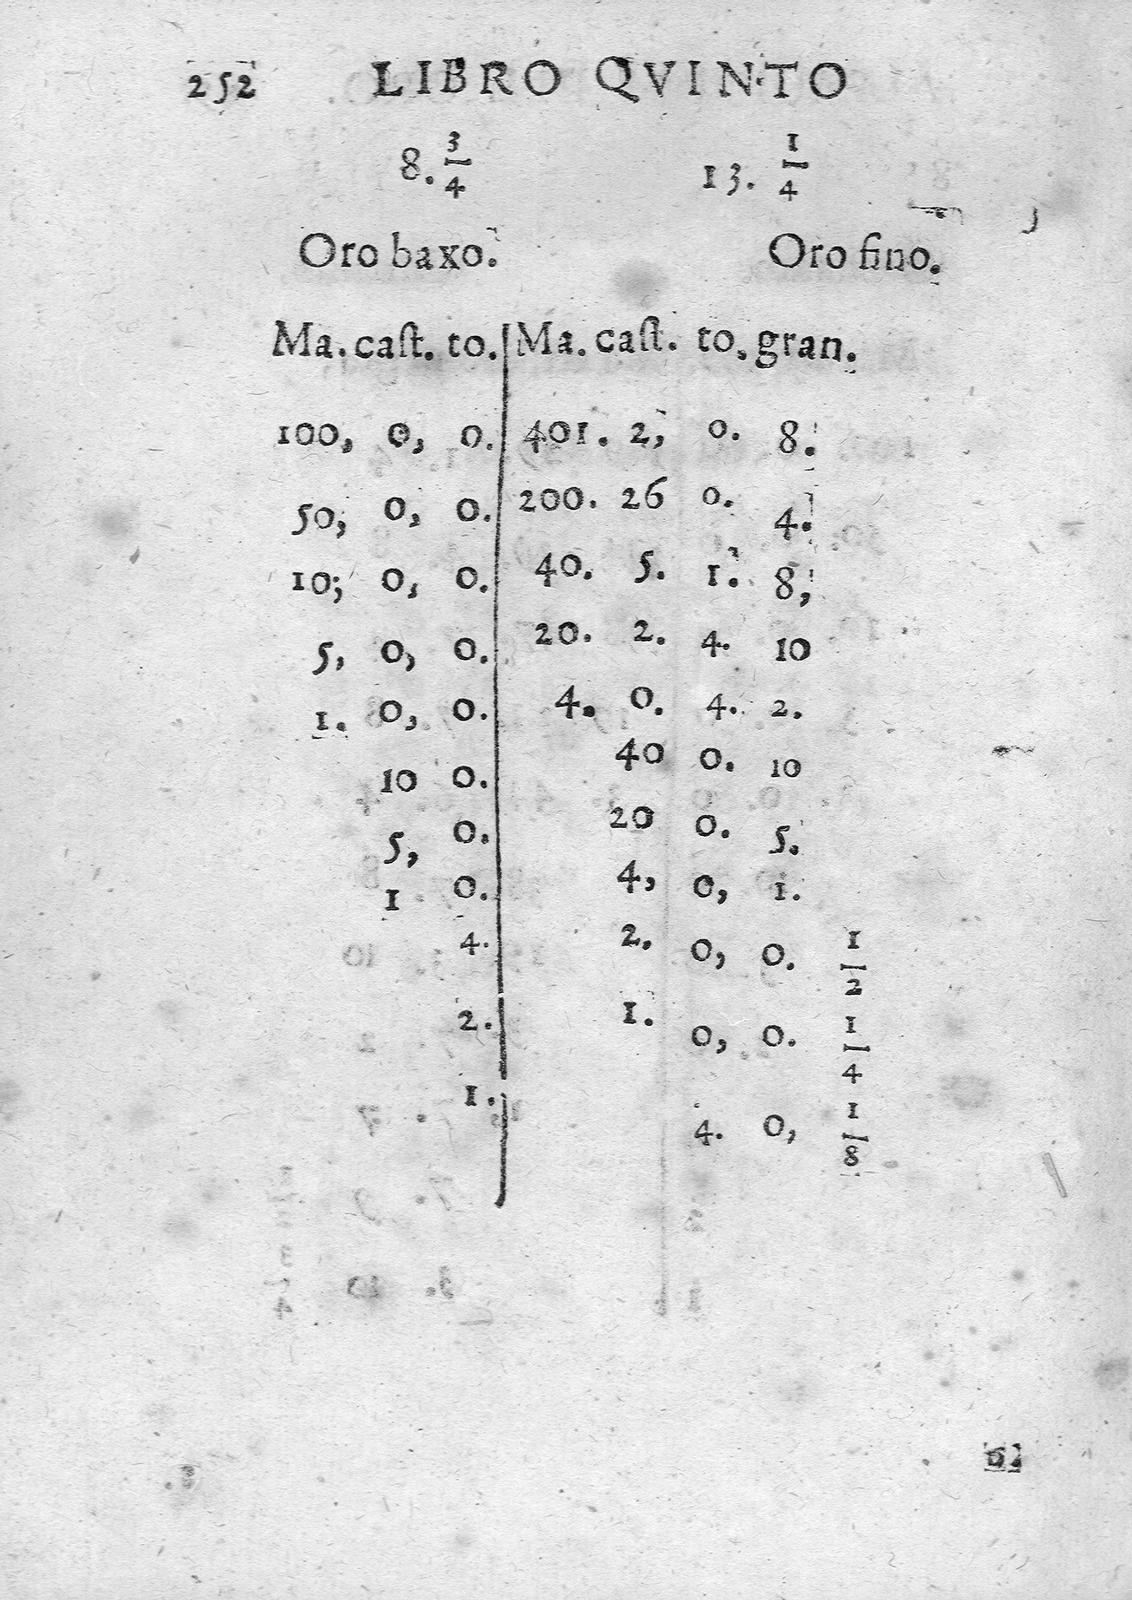 252 LIBRO QVINTO
8. 3/4 13. 1/4
Oro baxo. Oro fino.
Ma. caſt. to. Ma. caſt. to. gran.
100, 0, 0. 401. 2, 0. 8.
50, 0, 0. 200. 26 0. 4.
10; 0, 0. 40. 5. 1. 8,
5, 0, 0. 20. 2. 4. 10
1. 0, 0. 4. 0. 4. 2.
10 0. 40 0. 10
5, 0. 20 0. 5.
1 0. 4, 0, 1.
4. 2. 0, 0. 1/2
2. 1. 0, 0. 1/4
1. 4. 0, 1/8